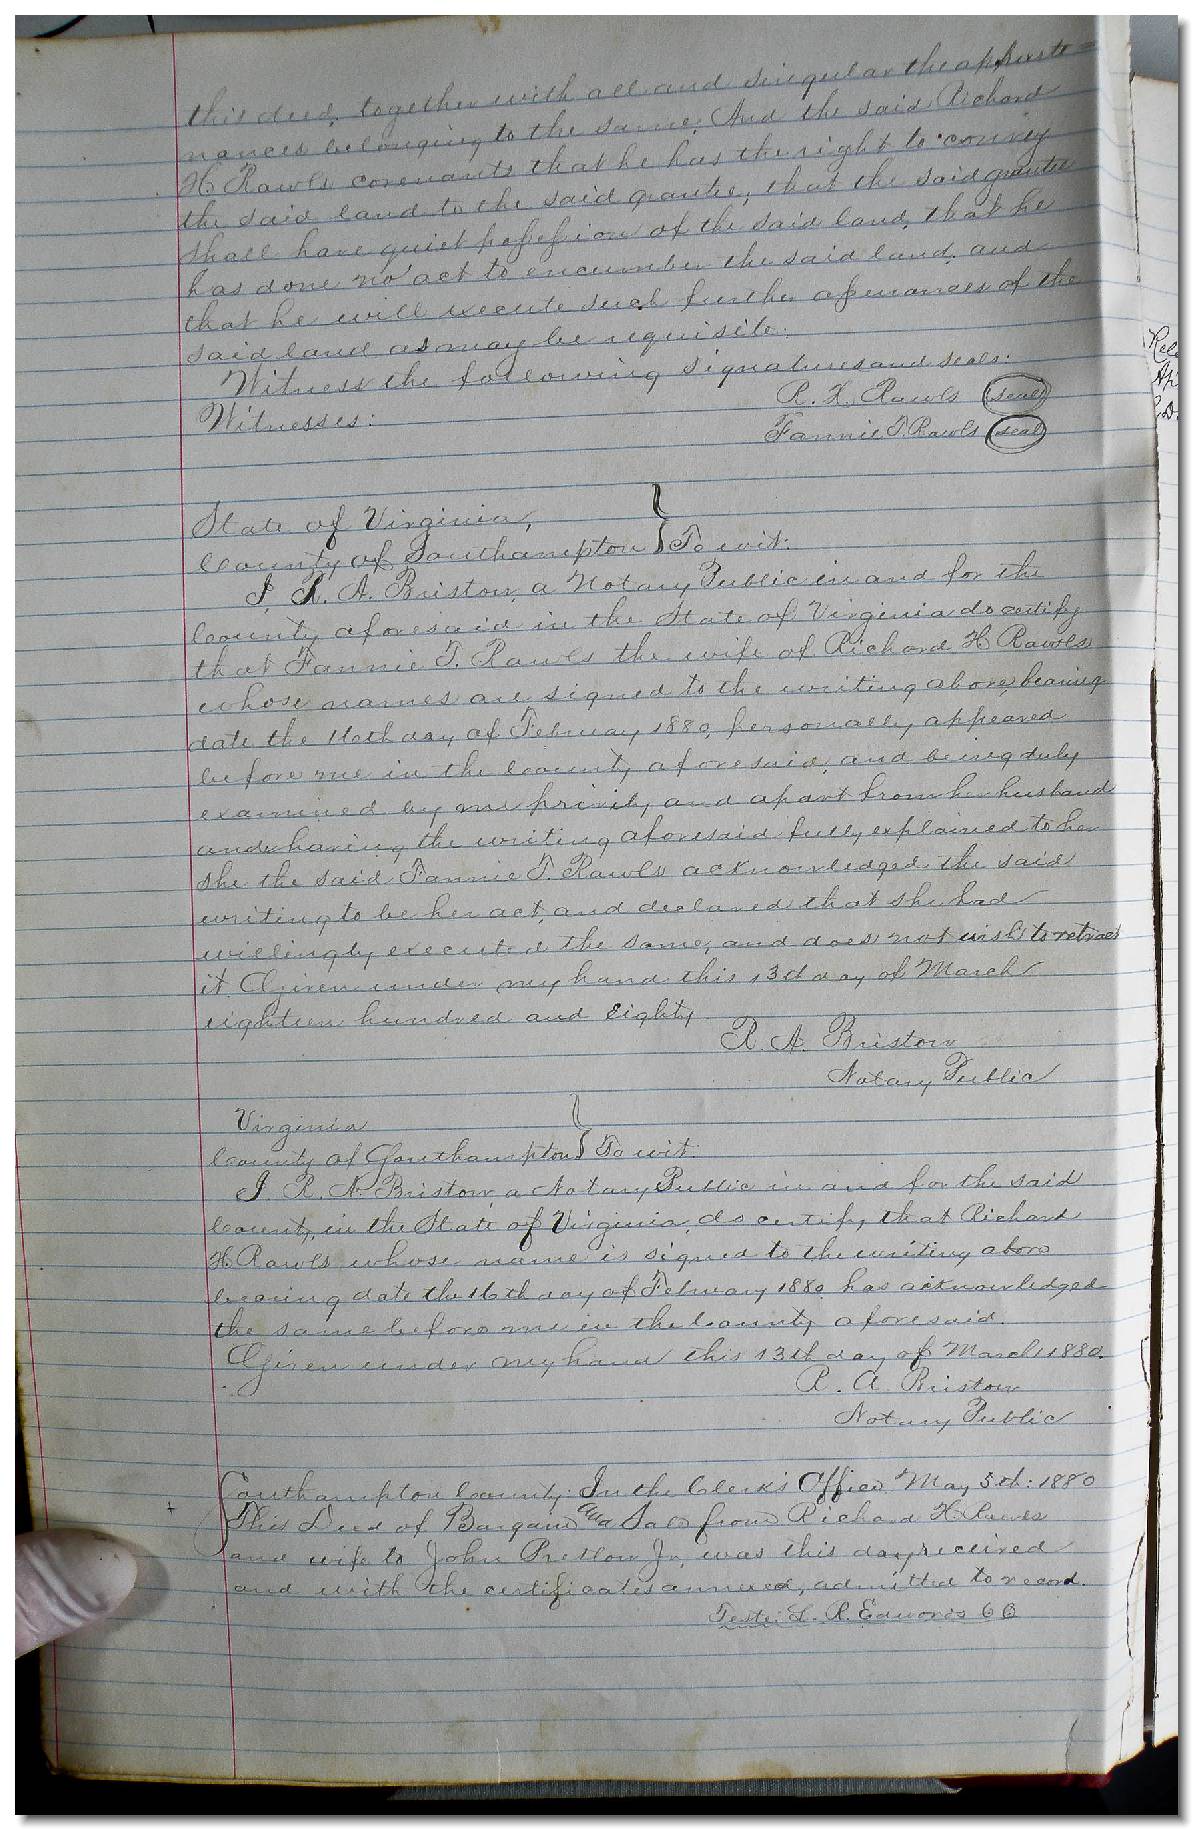 this deed, together with all and singular the appurte=
nances belonging to the same. And the said Richard
H Rawls covenants that he has the right to convey
the said land to the said grantee, that the said grantee
shall have quiet possession of the said land, that he
has done no act to encumber the said land, and
that he will execute such further assurances of the
said land as may be requisite.
Witness the following signatures and seals:
R. H. Rawls (seal)
Witnesses:
Fannie T. Rawls (seal)
State of Virginia,
County of Southampton } To wit:
I, R. A. Bristow, a Notary Public in and for the
County aforesaid in the State of Virginia do certify
that Fannie T. Rawls the wife of Richard H Rawls
whose names are signed to the writing above, bearing
date the 16th day of February 1880, personally appeared
before me in the County aforesaid, and being duly
examined by me privily and apart from her husband
and having the writing aforesaid fully explained to her
she the said Fannie T. Rawls acknowledged the said
writing to be her act, and declared that she had
willingly executed the same, and does not wish to retract
it. Given under my hand this 13th day of March
eighteen hundred and Eighty.
R. A. Bristow
Notary Public
Virginia
County of Southampton } To wit:
I, R. A. Bristow a Notary Public in and for the said
County, in the State of Virginia, do certify that Richard
H Rawls whose name is signed to the writing above
bearing date the 16th day of February 1880 has acknowledged
the same before me in the County aforesaid.
Given under my hand this 13th day of March 1880.
R. A. Bristow
Notary Public
Southampton County: In the Clerk's Office May 5th: 1880
This Deed of Bargain and Sale from Richard H Rawls
and wife to John Pretlow Jr, was this day received
and with the certificates annexed, admitted to record.
Teste: L. R. Edwards CC